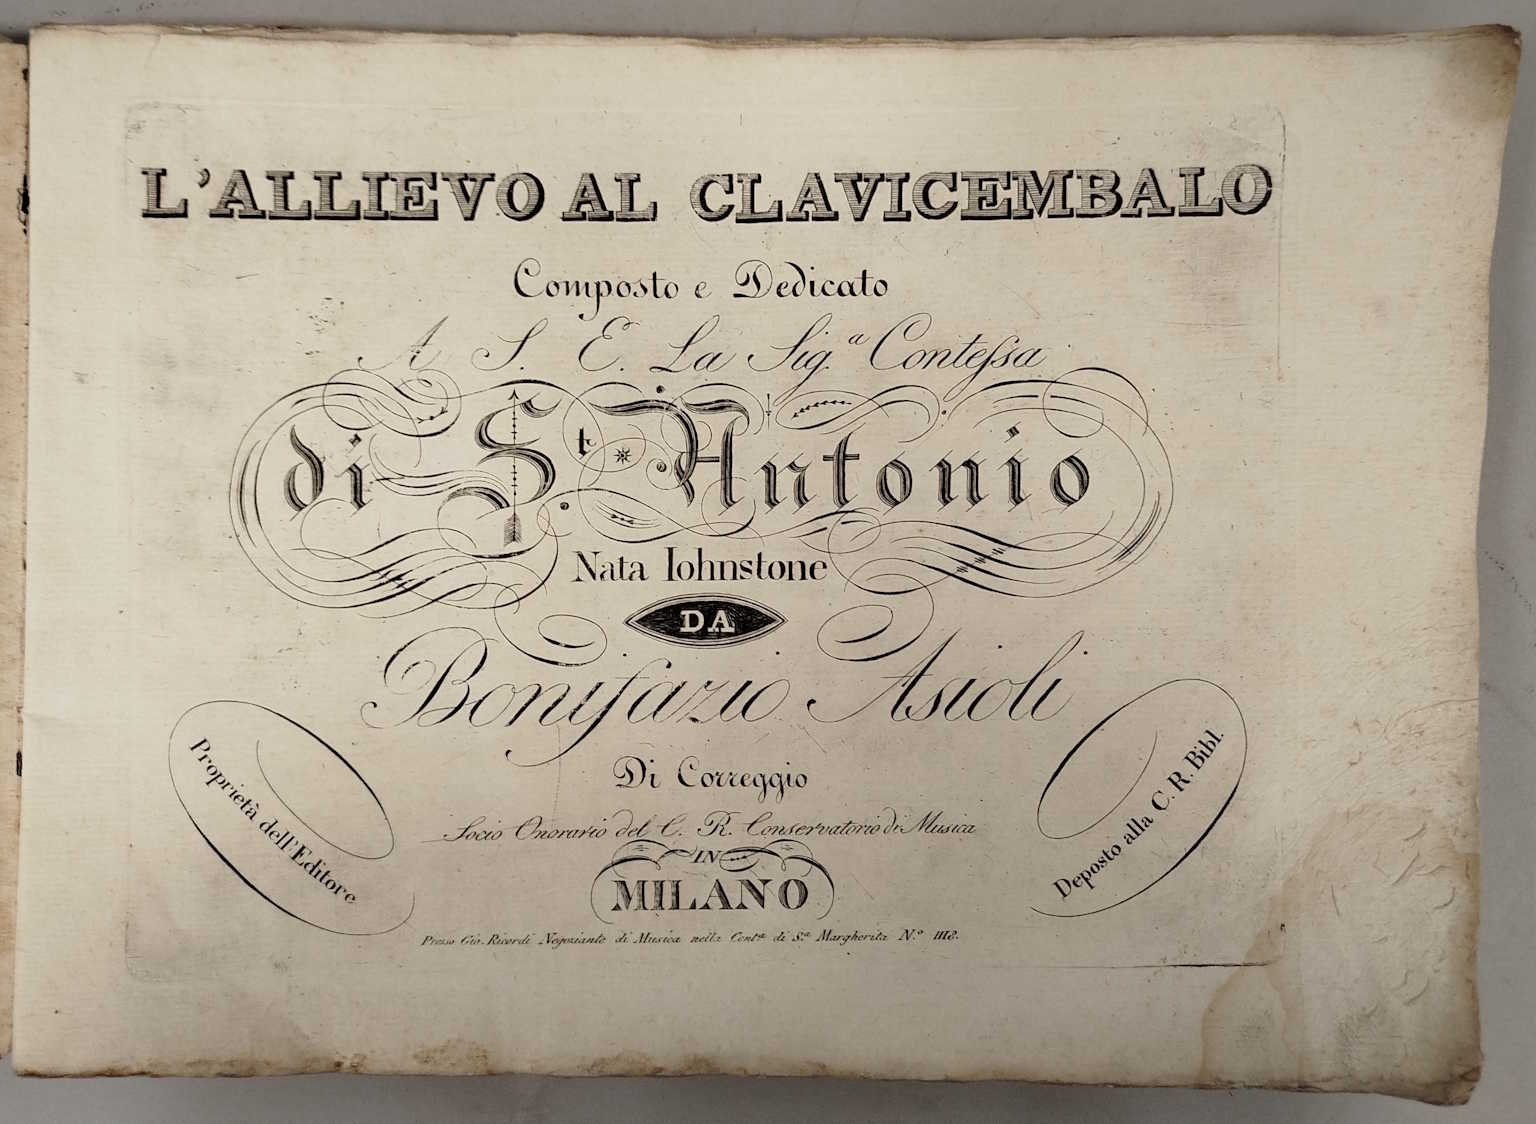 L'ALLIEVO AL CLAVICEMBALO
Composto e Dedicato
A S. E. La Sig.ª Contessa
di S.t Antonio
Nata Iohnstone
DA
Bonifazio Asioli
Di Correggio
Socio Onorario del C. R. Conservatorio di Musica
IN
MILANO
Presso Gio. Ricordi Negoziante di Musica nella Cont.ª di S.ª Margherita N.º 1118.
Proprietà dell'Editore
Deposto alla C. R. Bibl.